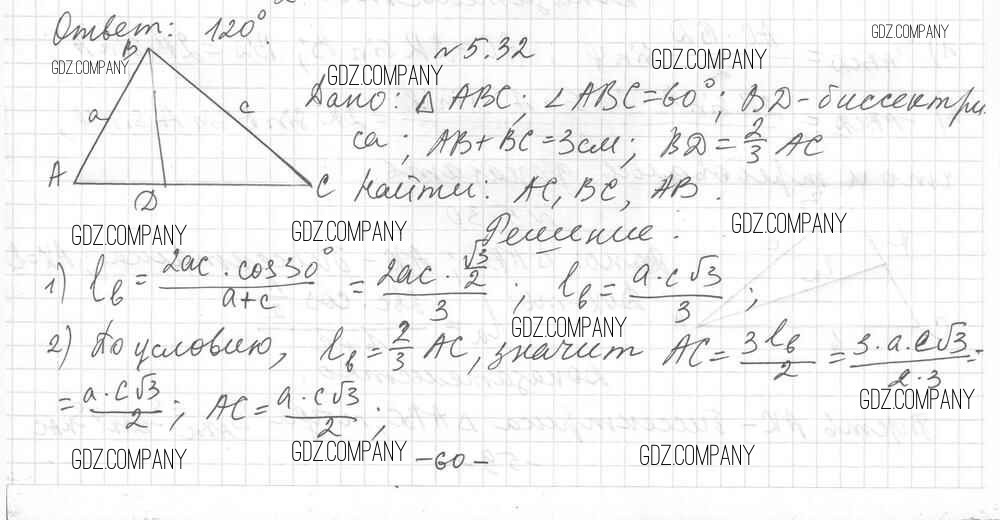 Ответ: 120°.
GDZ.COMPANY
№ 5.32
GDZ.COMPANY
GDZ.COMPANY
GDZ.COMPANY
B
a
c
A
D
C
Дано: △ ABC; ∠ABC=60°; BD-биссектри
са; AB+BC=3см; BD=2/3 AC
Найти: AC, BC, AB.
GDZ.COMPANY
GDZ.COMPANY
GDZ.COMPANY
Решение:
1) l_b = 2ac·cos30°/(a+c) = 2ac·(√3/2)/3; l_b = a·c√3/3;
GDZ.COMPANY
2) По условию, l_b = 2/3 AC, значит AC = 3l_b/2 = 3·a·c√3/(2·3) =
= a·c√3/2; AC = a·c√3/2;
GDZ.COMPANY
GDZ.COMPANY
GDZ.COMPANY
GDZ.COMPANY
-60-